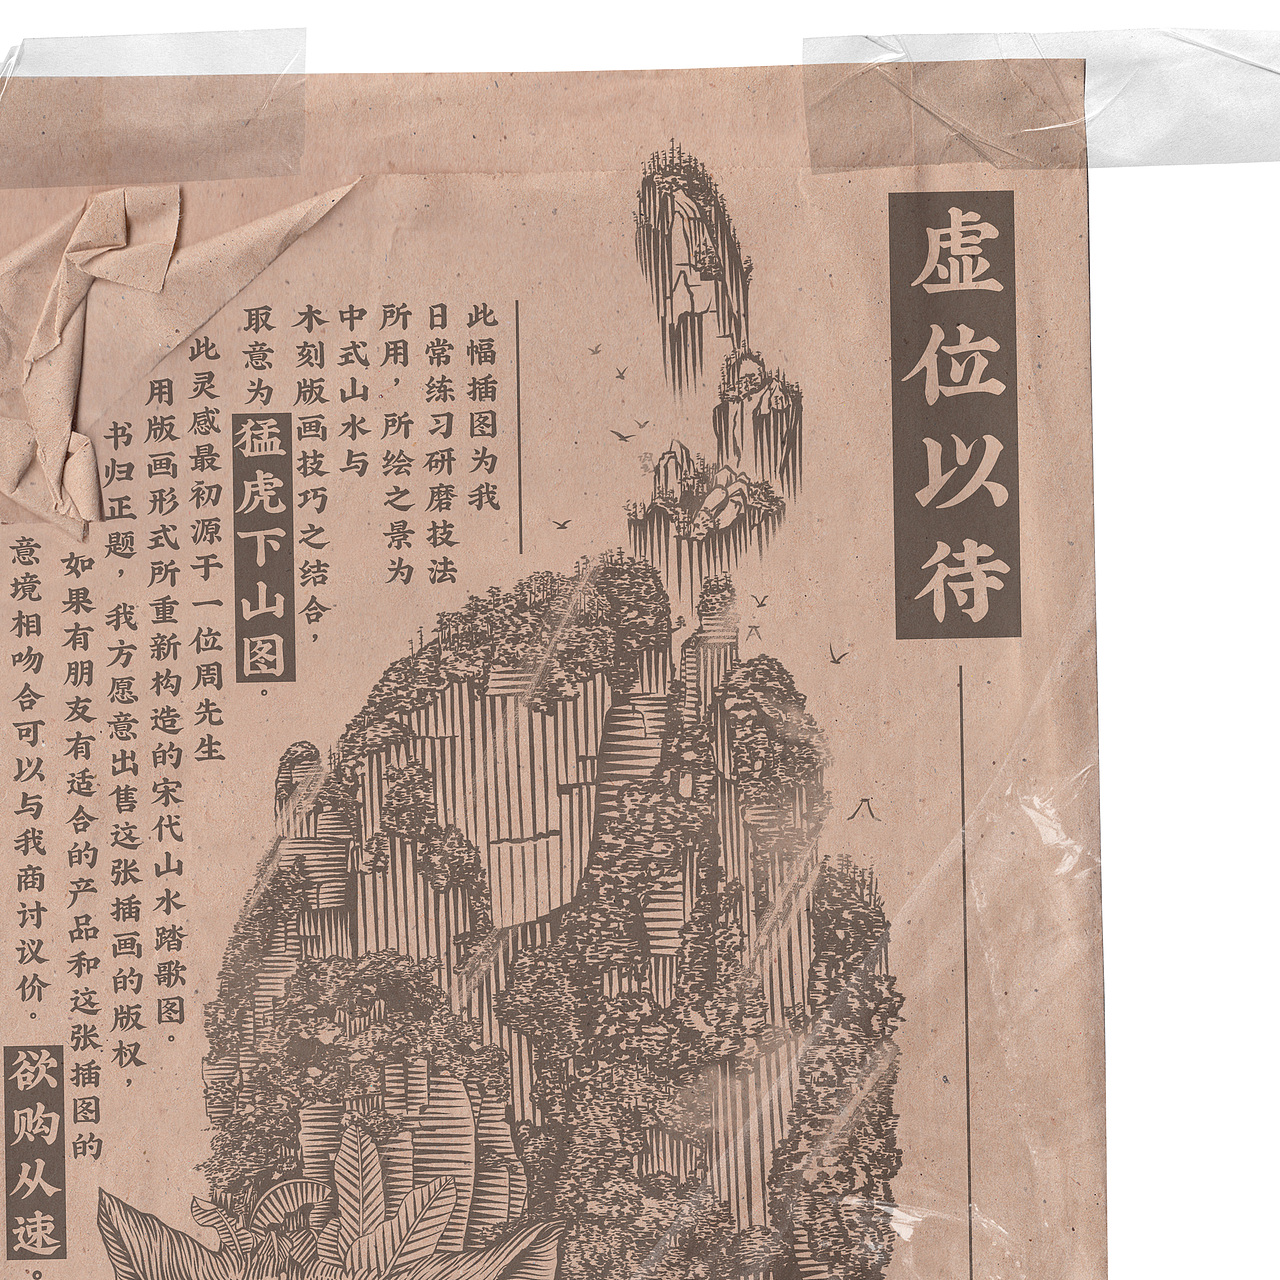 虚位以待
此幅插图为我
日常练习研磨技法
所用，所绘之景为
中式山水与
木刻版画技巧之结合，
取意为猛虎下山图。
此灵感最初源于一位周先生
用版画形式所重新构造的宋代山水踏歌图。
书归正题，我方愿意出售这张插画的版权，
如果有朋友有适合的产品和这张插图的
意境相吻合可以与我商讨议价。
欲购从速。